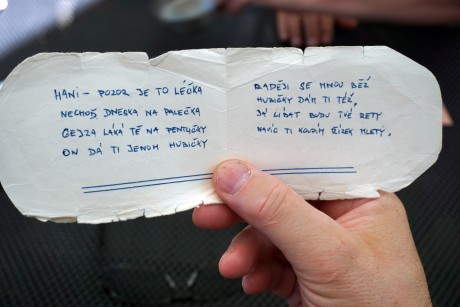 HANI - POZOR JE TO LÉČKA
NECHOĎ DNESKA NA PALEČKA
GEJZA LÁKÁ TĚ NA PENTLIČKY
ON DÁ TI JENOM HUBIČKY
RADĚJI SE MNOU BĚŽ
HUBIČKY DÁM TI TĚŽ,
JÁ LÍBAT BUDU TVÉ RETY
NAVÍC TI KOUPÍM ŘÍZEK MLETÝ.